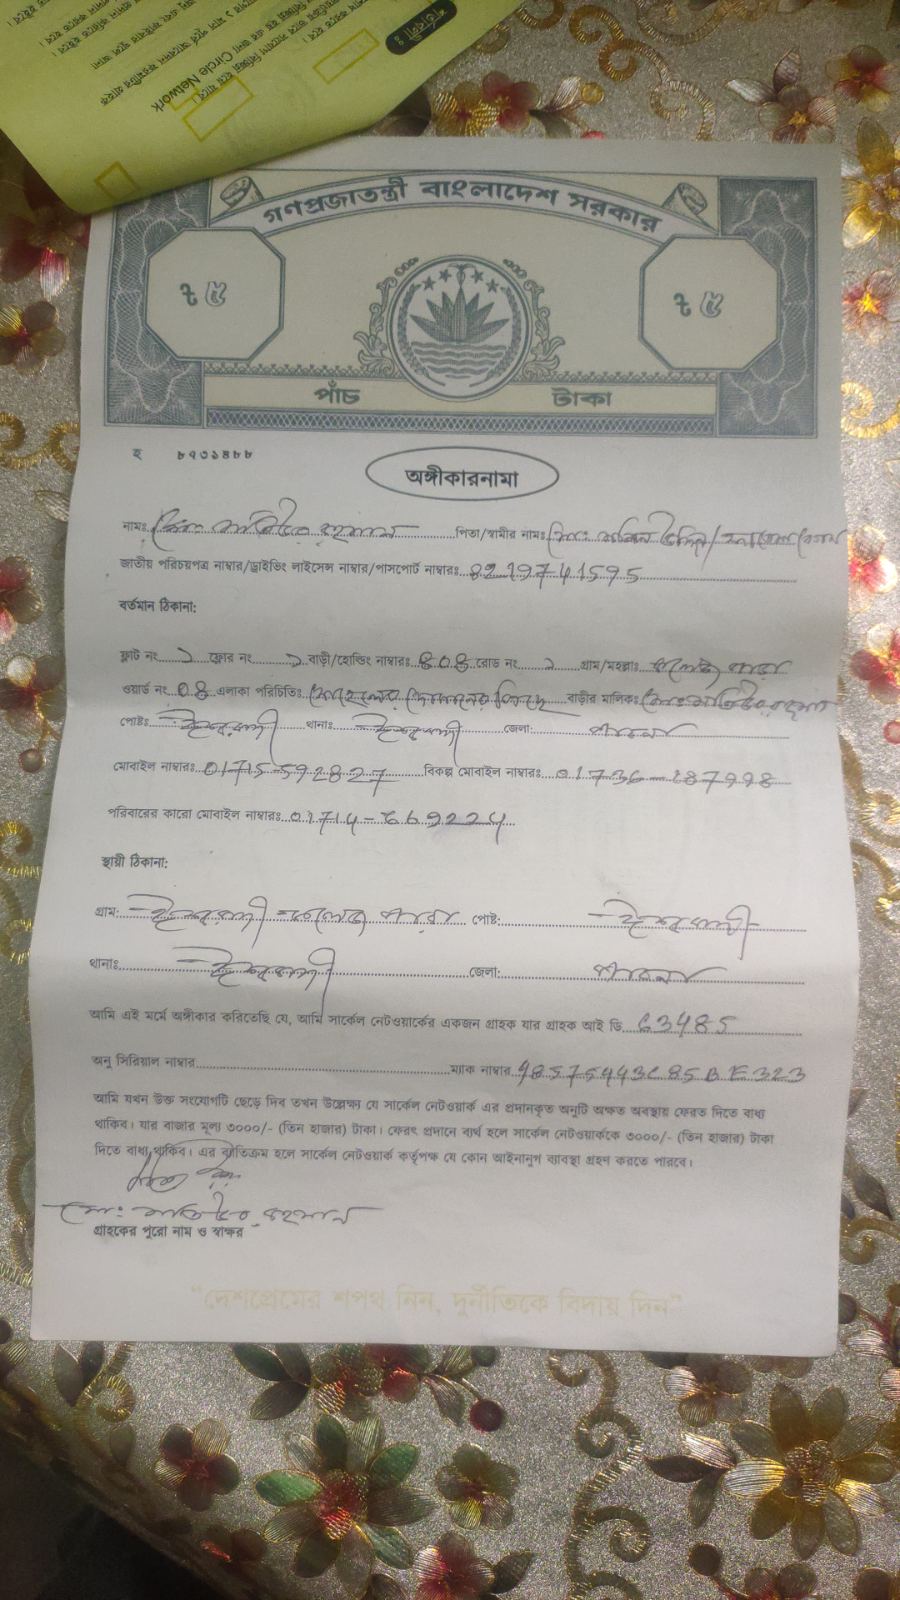 শর্তাবলী :
Circle Network
গণপ্রজাতন্ত্রী বাংলাদেশ সরকার
৳ ৫
৳ ৫
পাঁচ টাকা
হ ৮৭৩১৪৮৮
অঙ্গীকারনামা
নামঃ মোঃ রহমান পিতা/স্বামীর নামঃ মোঃ উদ্দিন/
জাতীয় পরিচয়পত্র নাম্বার/ড্রাইভিং লাইসেন্স নাম্বার/পাসপোর্ট নাম্বারঃ 8219741595
বর্তমান ঠিকানা:
ফ্লাট নং ১ ফ্লোর নং ১ বাড়ী/হোল্ডিং নাম্বারঃ ৪০৪ রোড নং ১ গ্রাম/মহল্লাঃ পাড়া
ওয়ার্ড নং 08 এলাকা পরিচিতিঃ দোকানের পিছে বাড়ীর মালিকঃ মোঃ রহমান
পোষ্টঃ ঈশ্বরদী থানাঃ ঈশ্বরদী জেলা: পাবনা
মোবাইল নাম্বারঃ 01715-592827 বিকল্প মোবাইল নাম্বারঃ
পরিবারের কারো মোবাইল নাম্বারঃ 01714-669224
স্থায়ী ঠিকানা:
গ্রাম: ঈশ্বরদী পাড়া পোষ্ট: ঈশ্বরদী
থানাঃ ঈশ্বরদী জেলা: পাবনা
আমি এই মর্মে অঙ্গীকার করিতেছি যে, আমি সার্কেল নেটওয়ার্কের একজন গ্রাহক যার গ্রাহক আই ডি 63485
অনু সিরিয়াল নাম্বার ম্যাক নাম্বার
আমি যখন উক্ত সংযোগটি ছেড়ে দিব তখন উল্লেক্ষ্য যে সার্কেল নেটওয়ার্ক এর প্রদানকৃত অনুটি অক্ষত অবস্থায় ফেরত দিতে বাধ্য
থাকিব। যার বাজার মূল্য ৩০০০/- (তিন হাজার) টাকা। ফেরৎ প্রদানে ব্যর্থ হলে সার্কেল নেটওয়ার্ককে ৩০০০/- (তিন হাজার) টাকা
দিতে বাধ্য থাকিব। এর ব্যতিক্রম হলে সার্কেল নেটওয়ার্ক কর্তৃপক্ষ যে কোন আইনানুগ ব্যবস্থা গ্রহণ করতে পারবে।
মোঃ রহমান
গ্রাহকের পুরো নাম ও স্বাক্ষর
"দেশপ্রেমের শপথ নিন, দুর্নীতিকে বিদায় দিন"